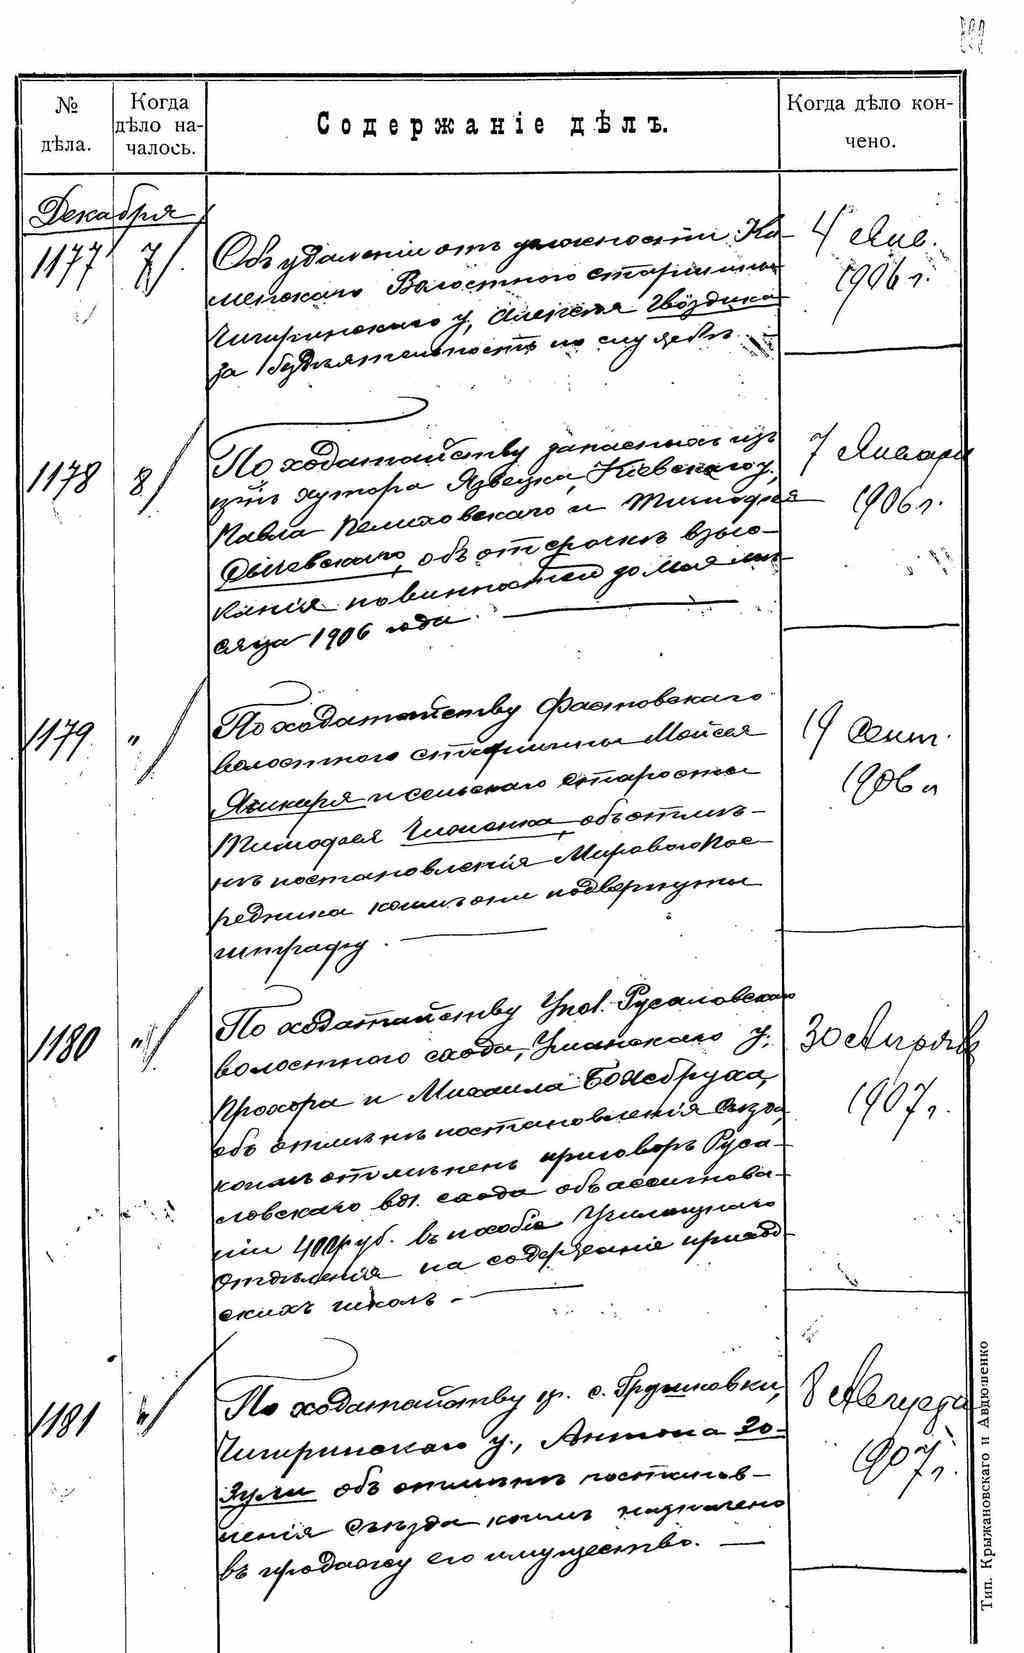 № дѣла.
Когда дѣло на-
чалось.
Содержаніе дѣлъ.
Когда дѣло кон-
чено.
Декабря
1177 7
Объ удаленіи отъ должности Ка-
менскаго Волостного старшины
Чигиринскаго у, Алексѣя Гвоздика
за бездѣятельность по службѣ.
4 Янв.
1906 г.
1178 8
По ходатайству запасныхъ изъ
хутора Кіевскаго у,
Павла и Тимофея
объ отсрочкѣ взыс-
канія повинностей до Мая мѣ-
сяца 1906 года.
7 Января
1906 г.
1179 "
По ходатайству Фастовскаго
волостного старшины Мойсея
и сельскаго старосты
Тимофея объ отмѣ-
нѣ постановленія Мирового Пос-
редника коимъ они подвергнуты
штрафу.
19 Сент.
1906 г
1180 "
По ходатайству Упол. Русаловскаго
волостного схода, Уманскаго у,
Прохора и Михаила
объ отмѣнѣ постановленія Съѣзда,
коимъ отмѣненъ приговоръ Руса-
ловскаго вол. схода объ ассигнова-
ніи 400 руб. въ пособіе Училищнаго
Отдѣленія на содержаніе приход-
скихъ школъ.
30 Апрѣля
1907 г.
1181 "
По ходатайству кр. с. Грушковки,
Чигиринскаго у., Антона Зо-
зули объ отмѣнѣ постанов-
ленія Съѣзда коимъ назначено
въ продажу его имущество.
8 Августа
1907 г.
Тип. Крыжановскаго и Авдюшенко